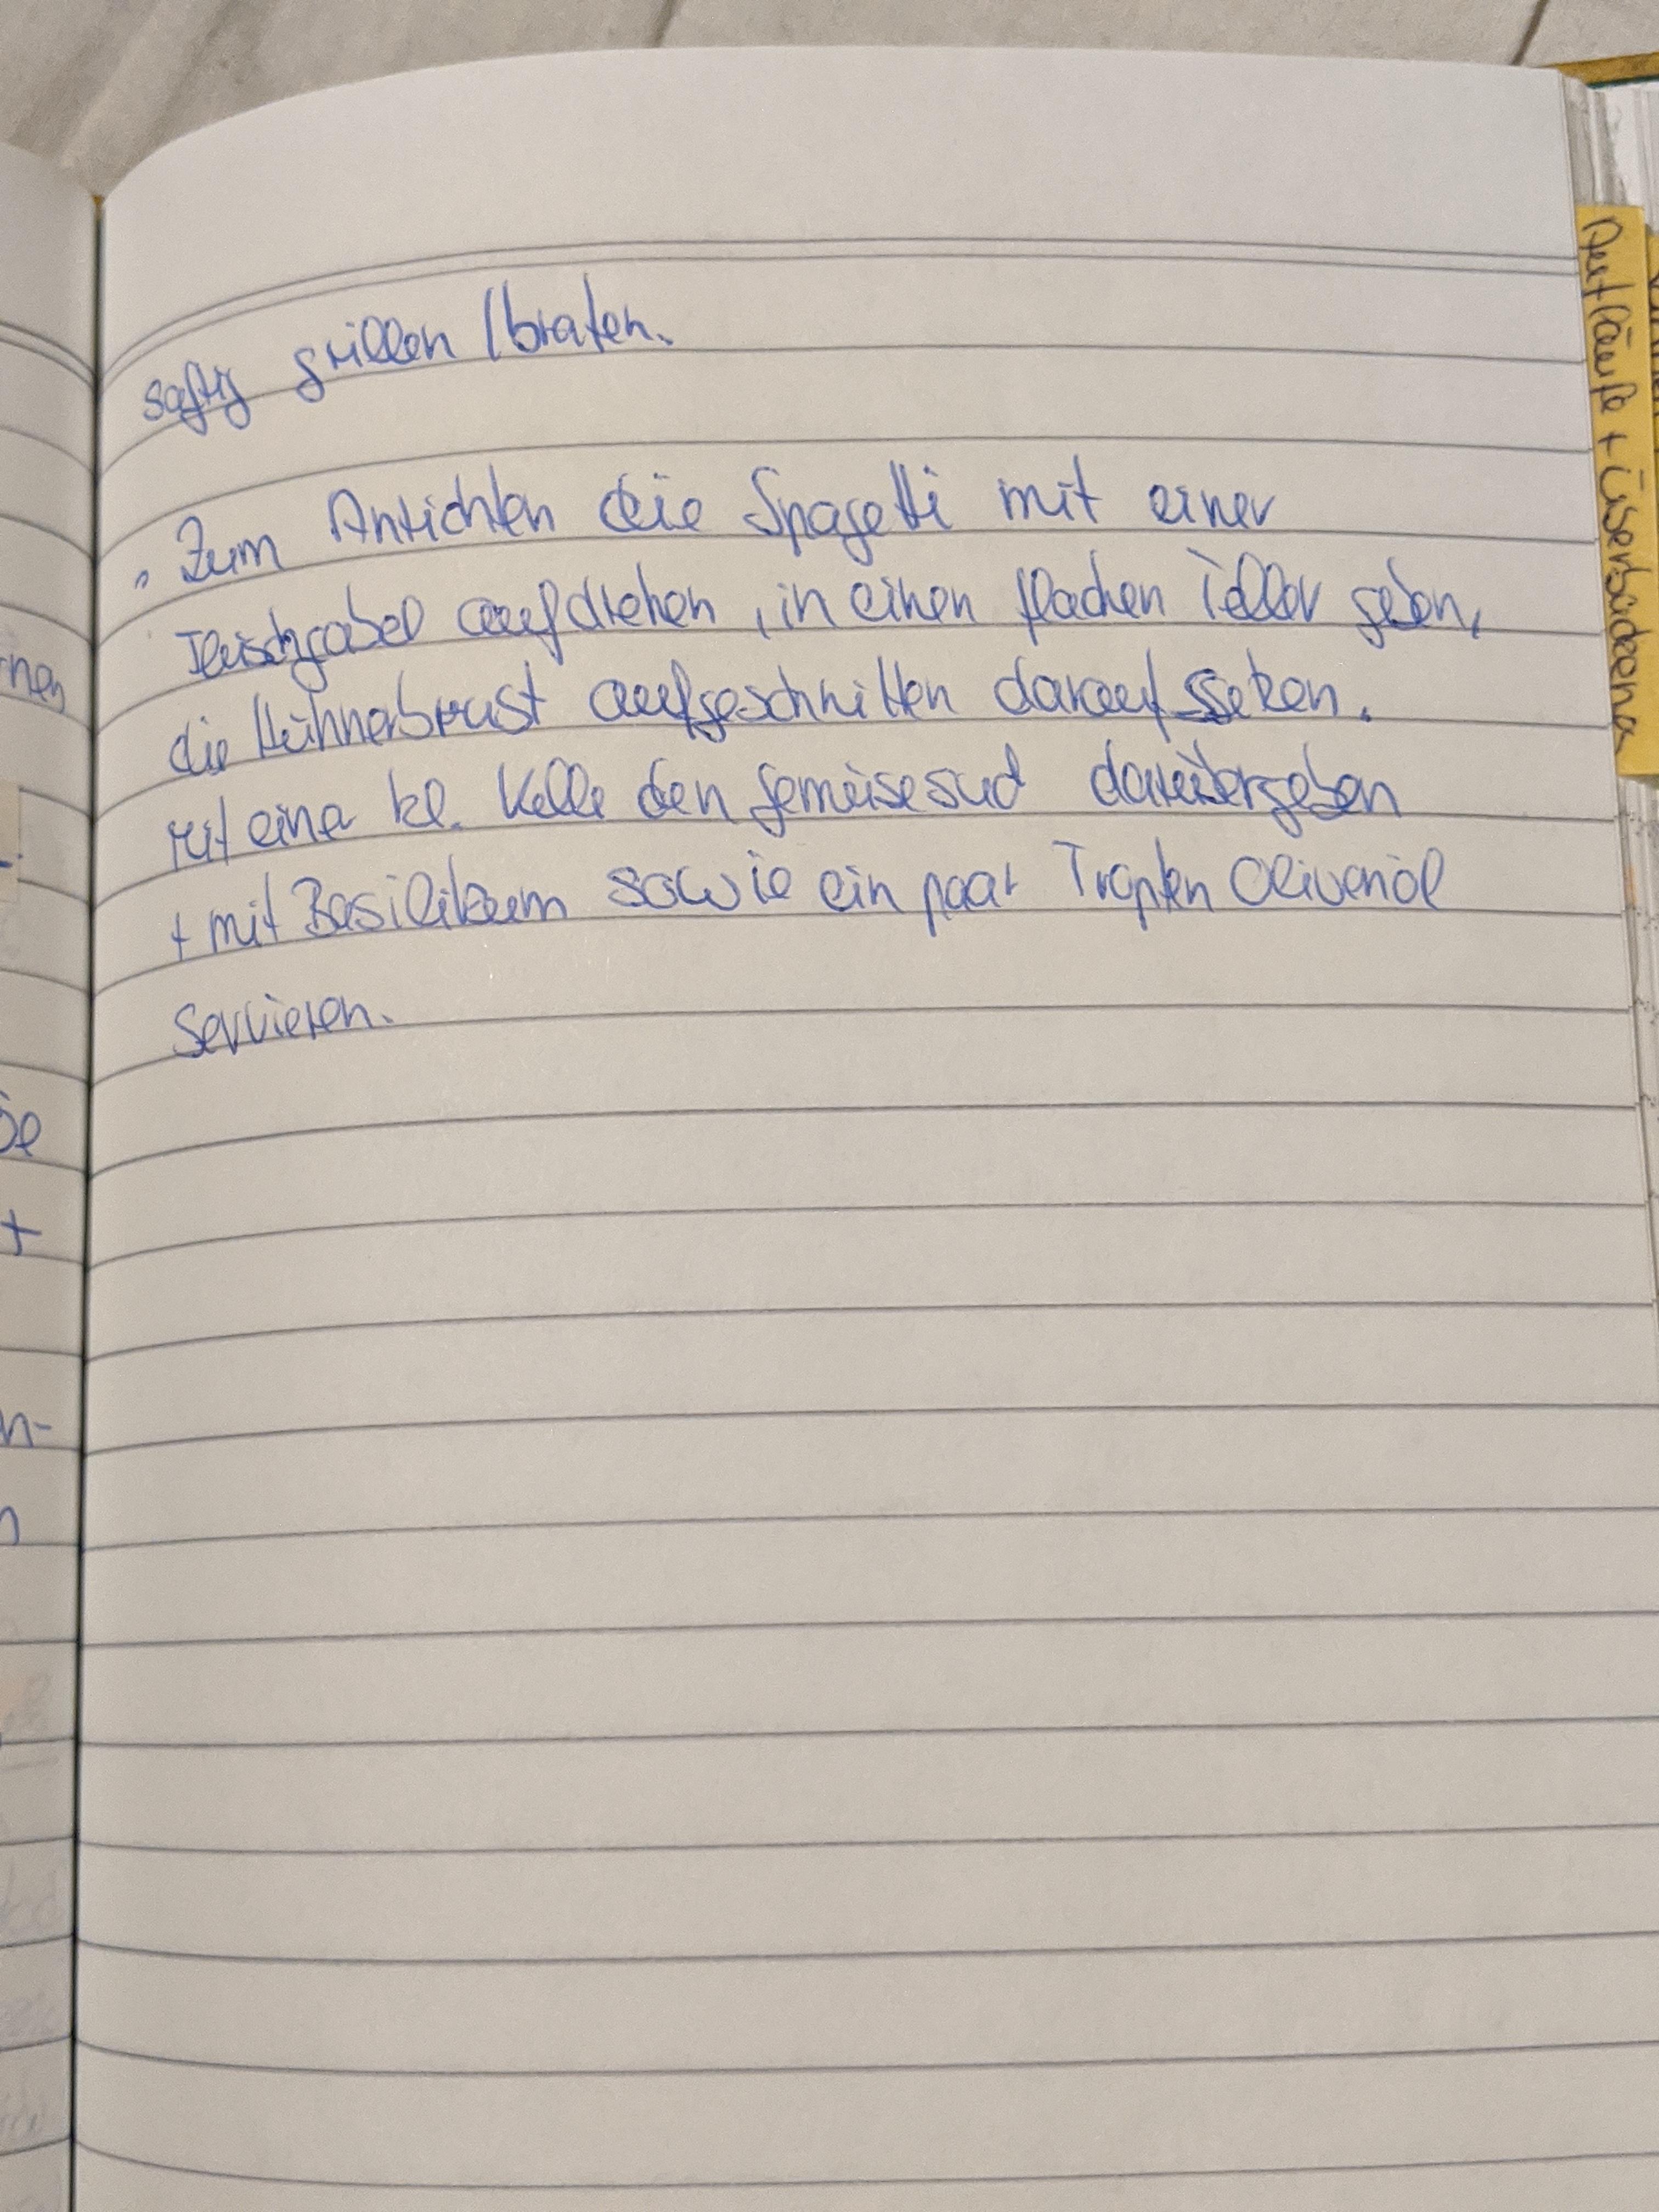 saftig grillen / braten.
• Zum Anrichten die Spagetti mit einer
Fleischgabel aufdrehen, in einen flachen Teller geben,
die Hühnerbrust aufgeschnitten darauf setzen.
mit einer kl. Kelle den Gemüsesud darübergeben
+ mit Basilikum sowie ein paar Tropfen Olivenöl
servieren.
Aufläufe + Überbackenes
nen
öl
+
n-
n